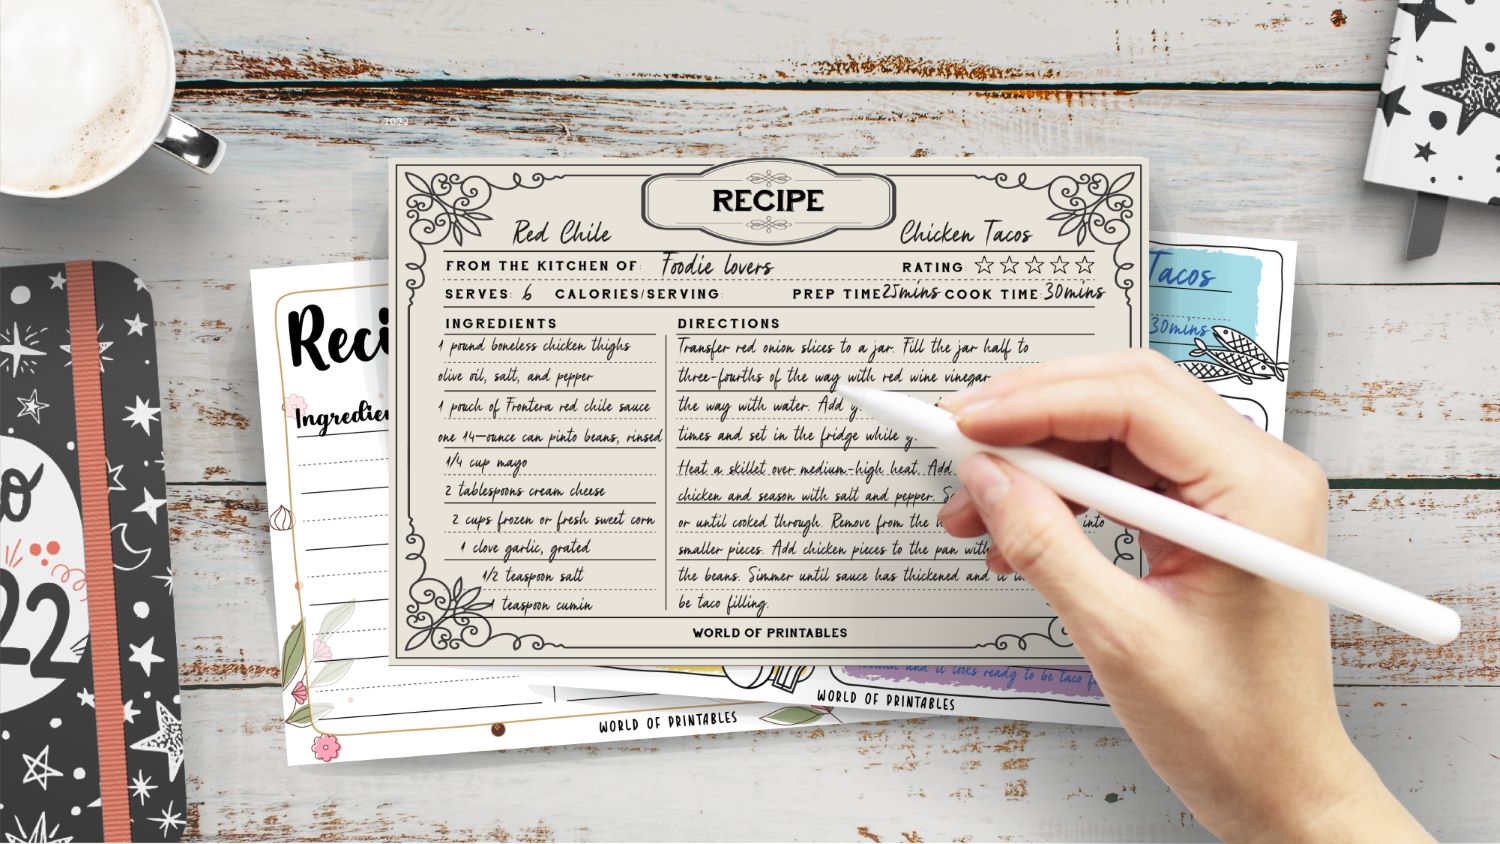 2022
RECIPE
Red Chile
Chicken Tacos
FROM THE KITCHEN OF: Foodie lovers
RATING: ☆☆☆☆☆
SERVES: 6 CALORIES/SERVING: PREP TIME: 25mins COOK TIME: 30mins
INGREDIENTS
1 pound boneless chicken thighs
olive oil, salt, and pepper
1 pouch of Frontera red chile sauce
one 14-ounce can pinto beans, rinsed
1/4 cup mayo
2 tablespoons cream cheese
2 cups frozen or fresh sweet corn
1 clove garlic, grated
1/2 teaspoon salt
1 teaspoon cumin
DIRECTIONS
Transfer red onion slices to a jar. Fill the jar half to
three-fourths of the way with red wine vinegar
the way with water. Add
times and set in the fridge while
Heat a skillet over medium-high heat. Add
chicken and season with salt and pepper.
or until cooked through. Remove from the into
smaller pieces. Add chicken pieces to the pan with
the beans. Simmer until sauce has thickened and it
be taco filling.
WORLD OF PRINTABLES
Reci
Ingredien
WORLD OF PRINTABLES
Tacos
30mins
and it looks ready to be taco
WORLD OF PRINTABLES
22